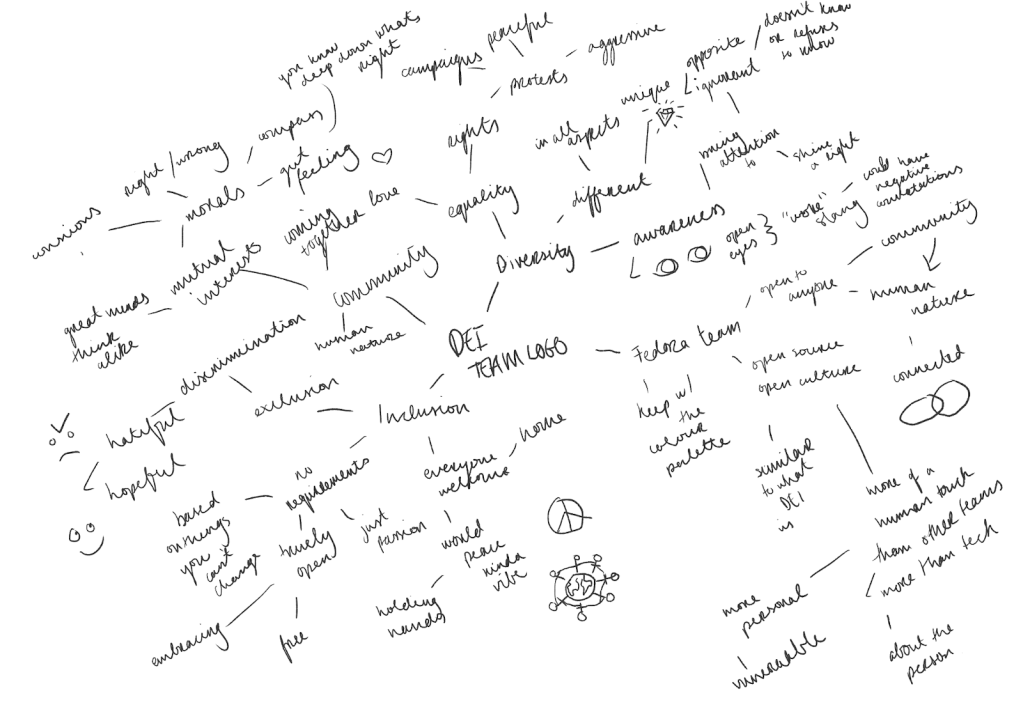 you know
deep down what's
right
campaigns
peaceful
protests
aggressive
opposite
doesn't know
or refuses
to know
ignorant
unique
right/wrong
compass
gut
feeling
rights
in all
aspects
bring
attention
to
shine
a light
morals
coming
together
love
equality
different
could have
negative
connotations
"woke"
slang
mutual
interests
community
Diversity
awareness
open
eyes
community
great minds
think
alike
human
nature
open to
anyone
human
nature
discrimination
DEI
TEAM LOGO
Fedora team
open source
open culture
connected
exclusion
Inclusion
keep w/
the
colour
palette
hateful
hopeful
no
requirements
everyone
welcome
home
similar
to what
DEI
is
more of a
human touch
than other teams
more than tech
based
on things
you
can't
change
truely
open
just
passion
world
peace
kinda
vibe
more
personal
holding
hands
embracing
free
vulnerable
about the
person